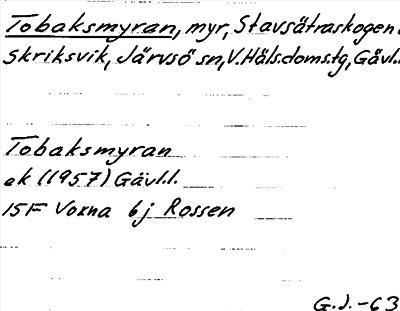 Tobaksmyran, myr, Stavsätraskogen
Skriksvik, Järvsö sn, V. Häls. doms. tg, Gävl.
Tobaksmyran
ek (1957) Gävl.l.
15F Voxna 6j Rossen
G.J. -63